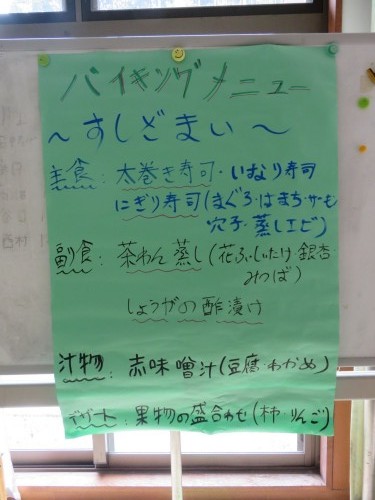 バイキングメニュー
～すしざまい～
主食：太巻き寿司・いなり寿司
にぎり寿司（まぐろ・はまち・サーモ
穴子・蒸しエビ）
副食：茶わん蒸し（花ふ・しいたけ・銀杏
みつば）
しょうがの酢漬け
汁物：赤味噌汁（豆腐・わかめ）
デザート：果物の盛合わせ（柿・りんご）